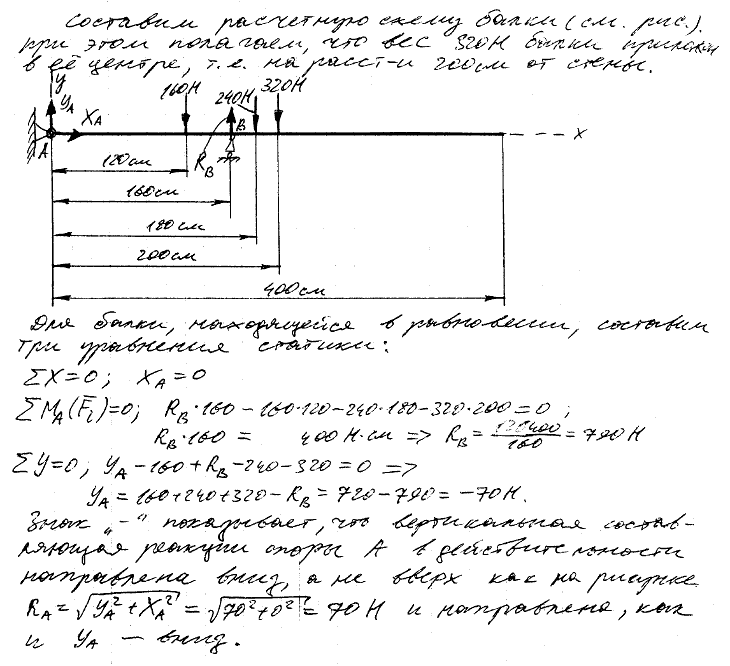 Составим расчетную схему балки (см. рис.).
при этом полагаем, что вес 320Н балки приложен
в её центре, т.е. на расст-и 200см от стены.
y
160Н
240Н
320Н
YA
XA
B
A
RB
x
120см
160см
180см
200см
400см
Для балки, находящейся в равновесии, составим
три уравнения статики:
ΣX=0; XA=0
ΣMA(F̄i)=0; RB·160-160·120-240·180-320·200=0;
RB·160= 400Н·см => RB=126400/160=790Н
ΣY=0; YA-160+RB-240-320=0 =>
YA=160+240+320-RB=720-790=-70Н.
Знак „-“ показывает, что вертикальная состав-
ляющая реакции опоры A в действительности
направлена вниз, а не вверх как на рисунке
RA=√(YA²+XA²)=√(70²+0²)=70Н и направлена, как
и YA — вниз.